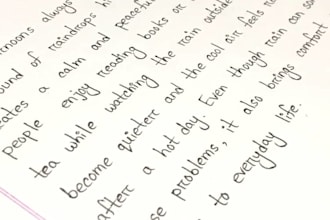 rnoons always
ound of raindrops hi
ates a calm and peacefu
people enjoy reading books or
tea while watching the rain outside
become quieter and the cool air feels re
after a hot day. Even though rain can so
se problems, it also brings comfort
to everyday life.